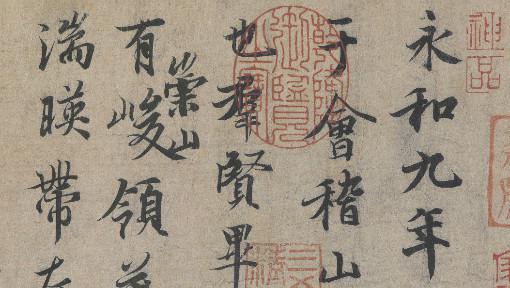 神品
永和九年
于會稽山
也羣賢畢
有崇山峻領
湍暎帶